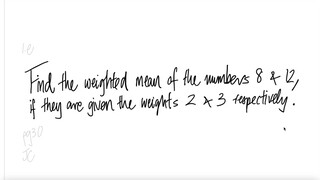 Find the weighted mean of the numbers 8 & 12,
if they are given the weights 2 & 3 respectively.
pg30